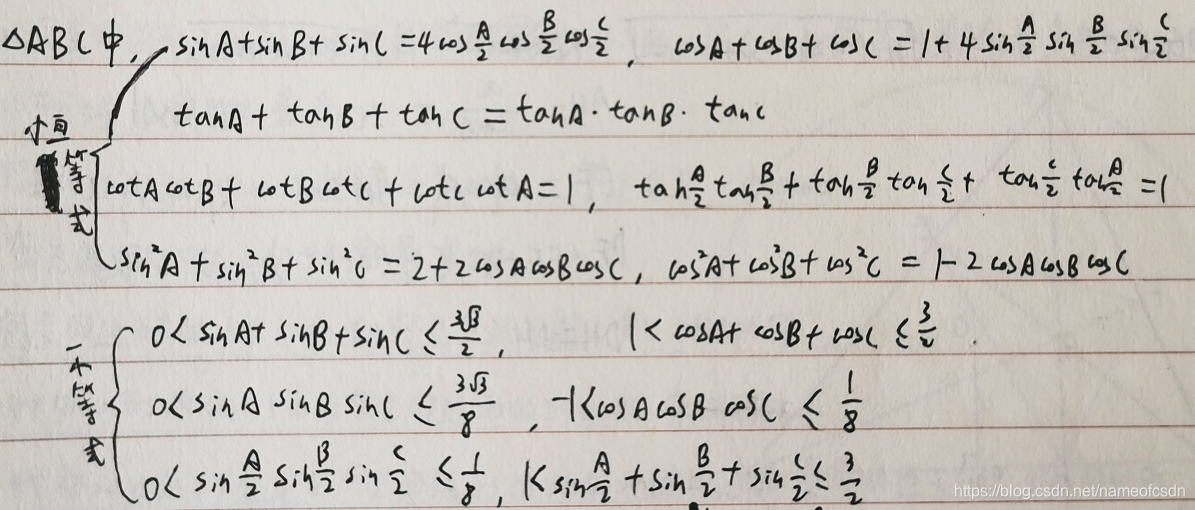 △ABC中, sinA+sinB+sinC=4cos$\frac{A}{2}$cos$\frac{B}{2}$cos$\frac{C}{2}$, cosA+cosB+cosC=1+4sin$\frac{A}{2}$sin$\frac{B}{2}$sin$\frac{C}{2}$
tanA+tanB+tanC=tanA·tanB·tanC
恒等式
cotAcotB+cotBcotC+cotCcotA=1, tan$\frac{A}{2}$tan$\frac{B}{2}$+tan$\frac{B}{2}$tan$\frac{C}{2}$+tan$\frac{C}{2}$tan$\frac{A}{2}$=1
sin²A+sin²B+sin²C=2+2cosAcosBcosC, cos²A+cos²B+cos²C=1-2cosAcosBcosC
不等式
0<sinA+sinB+sinC≤$\frac{3\sqrt{3}}{2}$, 1<cosA+cosB+cosC≤$\frac{3}{2}$
0<sinAsinBsinC≤$\frac{3\sqrt{3}}{8}$, -1<cosAcosBcosC≤$\frac{1}{8}$
0<sin$\frac{A}{2}$sin$\frac{B}{2}$sin$\frac{C}{2}$≤$\frac{1}{8}$, 1<sin$\frac{A}{2}$+sin$\frac{B}{2}$+sin$\frac{C}{2}$≤$\frac{3}{2}$
https://blog.csdn.net/nameofcsdn